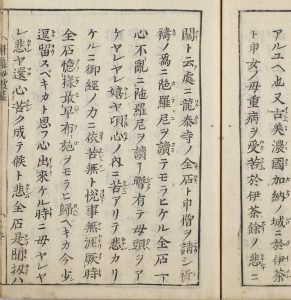 アルユヘ也又古美濃国加納ノ城ニ於伊茶
ト申女ノ母重病ヲ受苦於伊茶餘ノ悲ニ
關ト云處ニ龍泰寺ノ全石ト申僧ヲ請シ祈
祷ノ為ニ陀羅尼ヲ讀テモラヒケル全石一
心不亂ニ陀羅尼ヲ讀ニ暫有テ母頭ヲア
ケヤレヤレ嬉ヤ項心ノ内ニ苦アリテ悲カリ
ケルニ御經ノ力ニ依苦無ト悦事無涯厥時
全石憶様最早布施ヲモラヒ歸ヘキカ今少
逗留スヘキカト思フ心出來ケル時ニ母ヤレヤ
レ悲ヤ還心苦ク成テ候ト悲全石是聞扨ハ